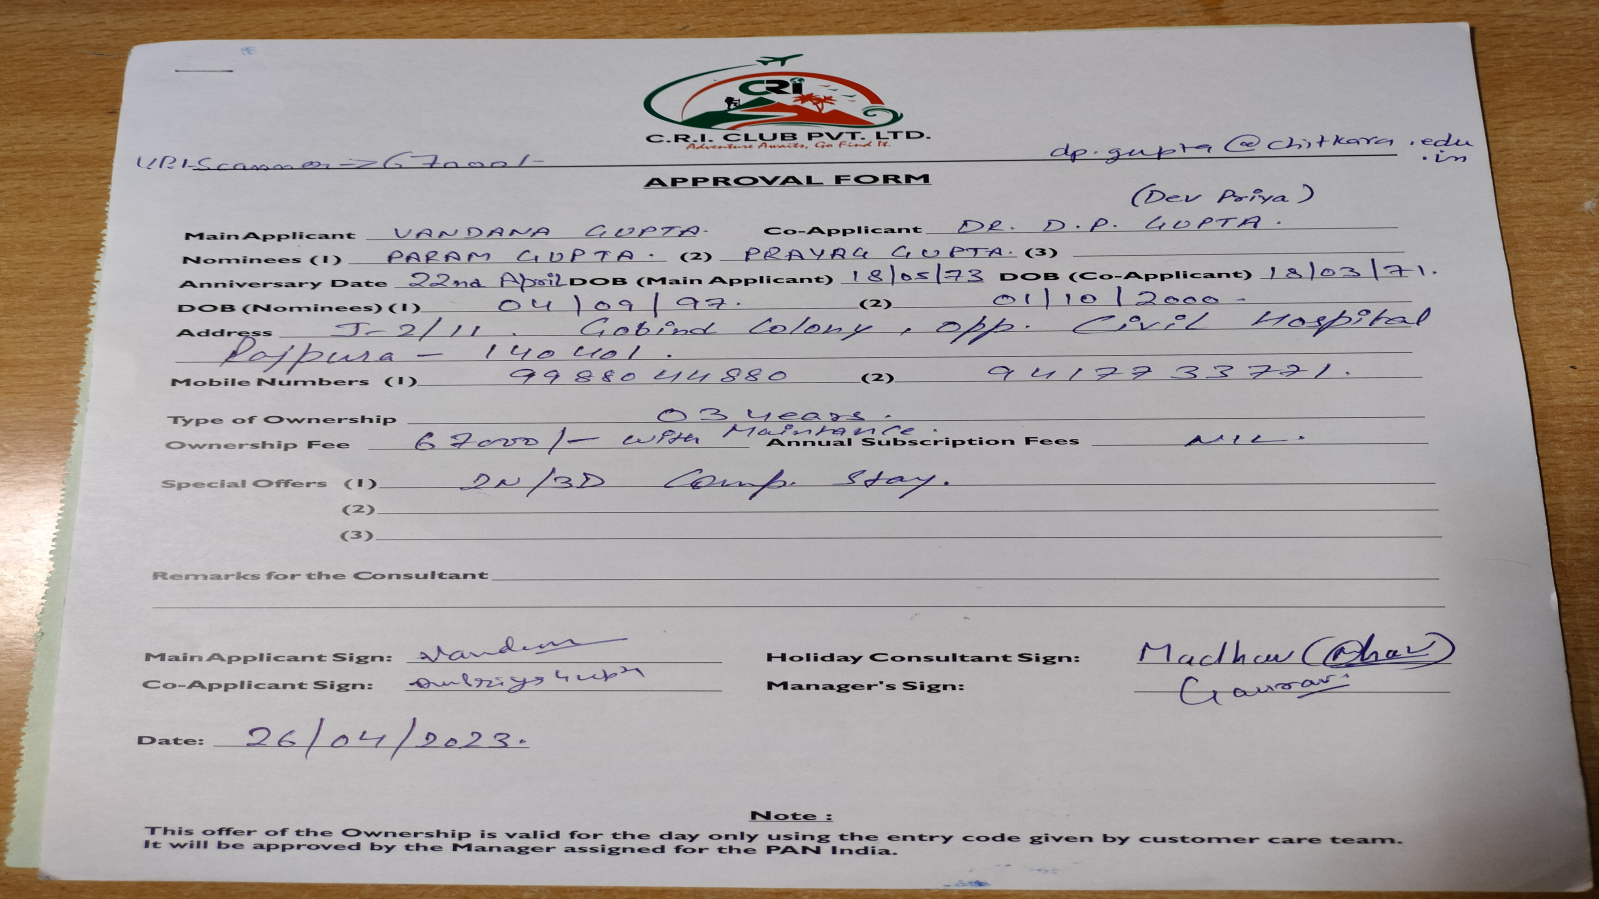 CRi
C.R.I. CLUB PVT. LTD.
Adventure Awaits, Go Find It.
UPI Scanner → 67000/-
dp.gupta@chitkara.edu
.in
APPROVAL FORM
(Dev Priya)
Main Applicant VANDANA GUPTA. Co-Applicant DR. D.P. GUPTA.
Nominees (1) PARAM GUPTA. (2) PRAYAG GUPTA. (3)
Anniversary Date 22nd April DOB (Main Applicant) 18/05/73 DOB (Co-Applicant) 18/03/71.
DOB (Nominees) (1) 04/09/97. (2) 01/10/2000.
Address J-2/11. Gobind Colony, opp. Civil Hospital
Rajpura - 140401.
Mobile Numbers (1) 9988044880 (2) 9417733771.
Type of Ownership 03 years.
Ownership Fee 67000/- with Maintance. Annual Subscription Fees NIL.
Special Offers (1) 2N/3D Comp. Stay.
(2)
(3)
Remarks for the Consultant
Main Applicant Sign: Vandana Holiday Consultant Sign: Madhav
Co-Applicant Sign: Manager's Sign: Gaurav
Date: 26/04/2023.
Note :
This offer of the Ownership is valid for the day only using the entry code given by customer care team.
It will be approved by the Manager assigned for the PAN India.